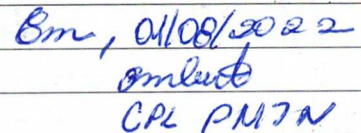 Em, 01/08/2022
CPL PMJN